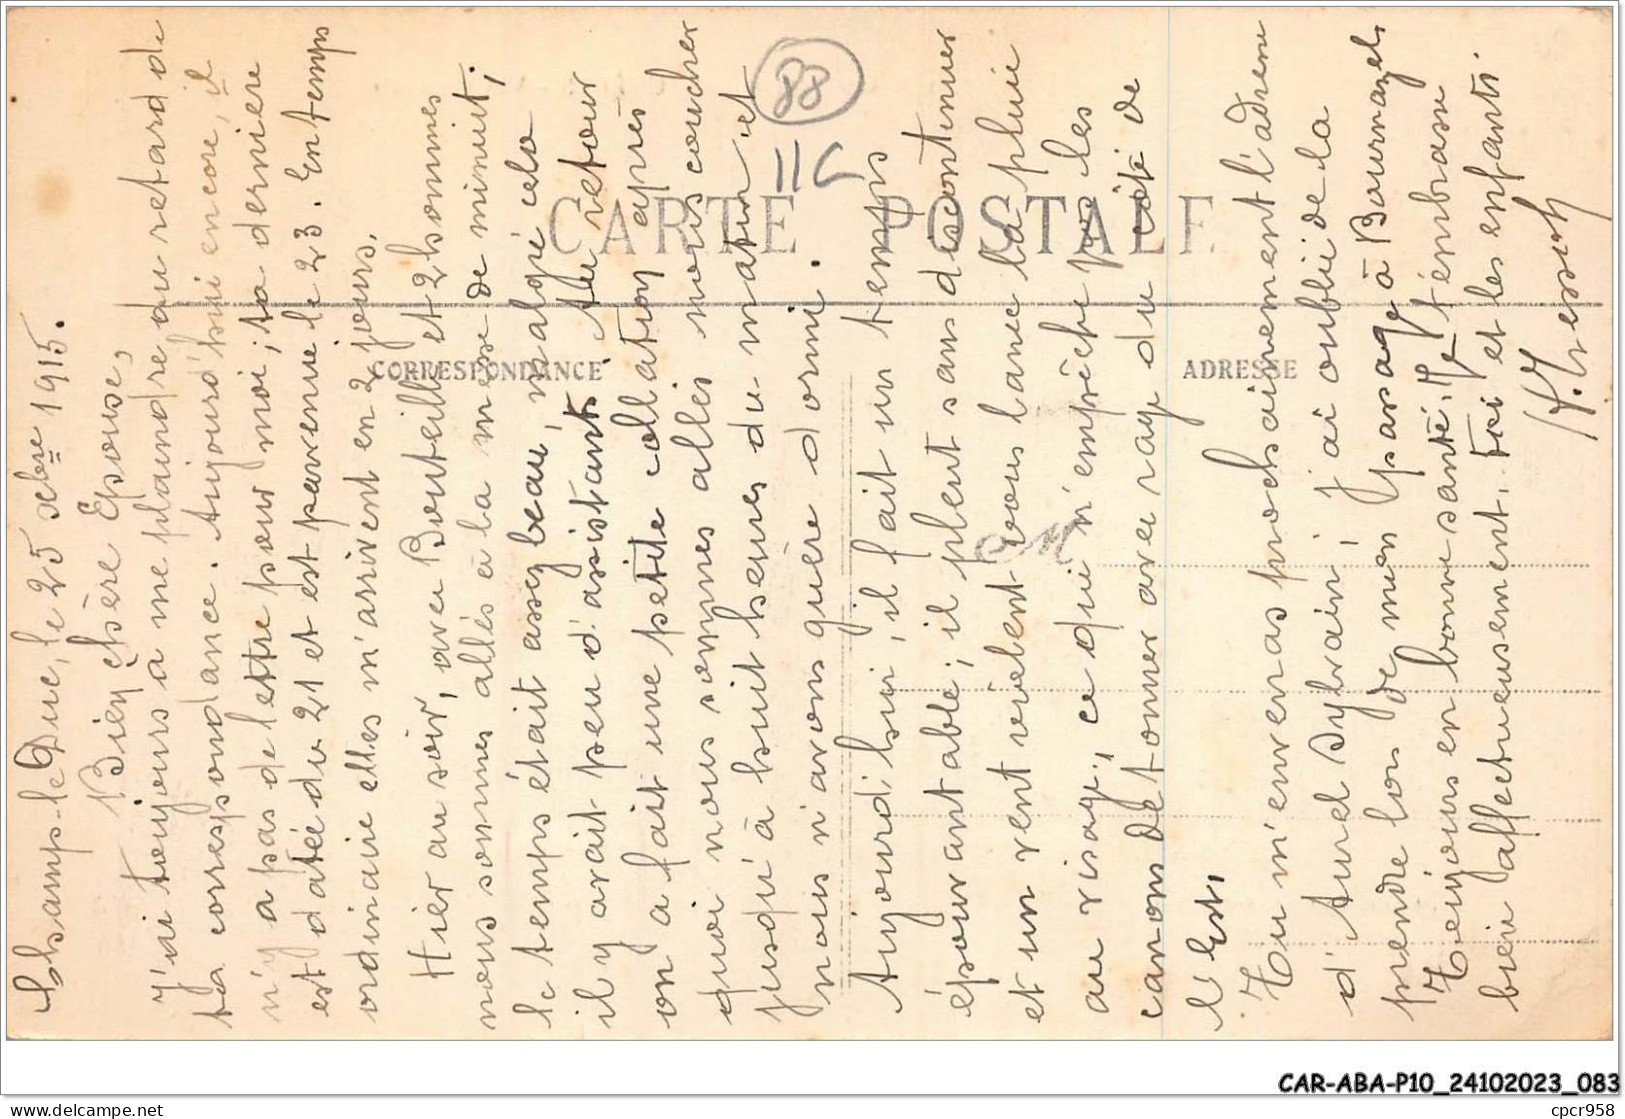 Champ-le-Duc, le 25 xbre 1915.
Bien chère Epouse,
J'ai toujours à me plaindre du retard de
ta correspondance. Aujourd'hui encore, il
n'y a pas de lettre pour moi ; ta dernière
est datée du 21 et est parvenue le 23. En temps
ordinaire elles m'arrivent en 2 jours.
Hier au soir, avec Bouteille et 2 hommes
nous sommes allés à la messe de minuit ;
le temps était assez beau, malgré cela
il y avait peu d'assistants. Au retour
on a fait une petite collation après
quoi nous sommes allés nous coucher
jusqu'à huit heures du matin et
nous n'avons guère dormi.
Aujourd'hui, il fait un temps
épouvantable ; il pleut sans discontinuer
et un vent violent vous lance la pluie
au visage, ce qui n'empêche pas les
canons de tonner avec rage du côté de
l'Est.
Tu m'enverras prochainement l'adresse
d'Aurel Sybrain ; j'ai oublié de la
prendre lors de mon passage à Bournazel.
Toujours en bonne santé. Je t'embrasse
bien affectueusement, toi et les enfants.
CARTE POSTALE
CORRESPONDANCE
ADRESSE
88
11C
CAR-ABA-P10_24102023_083
cpcr958